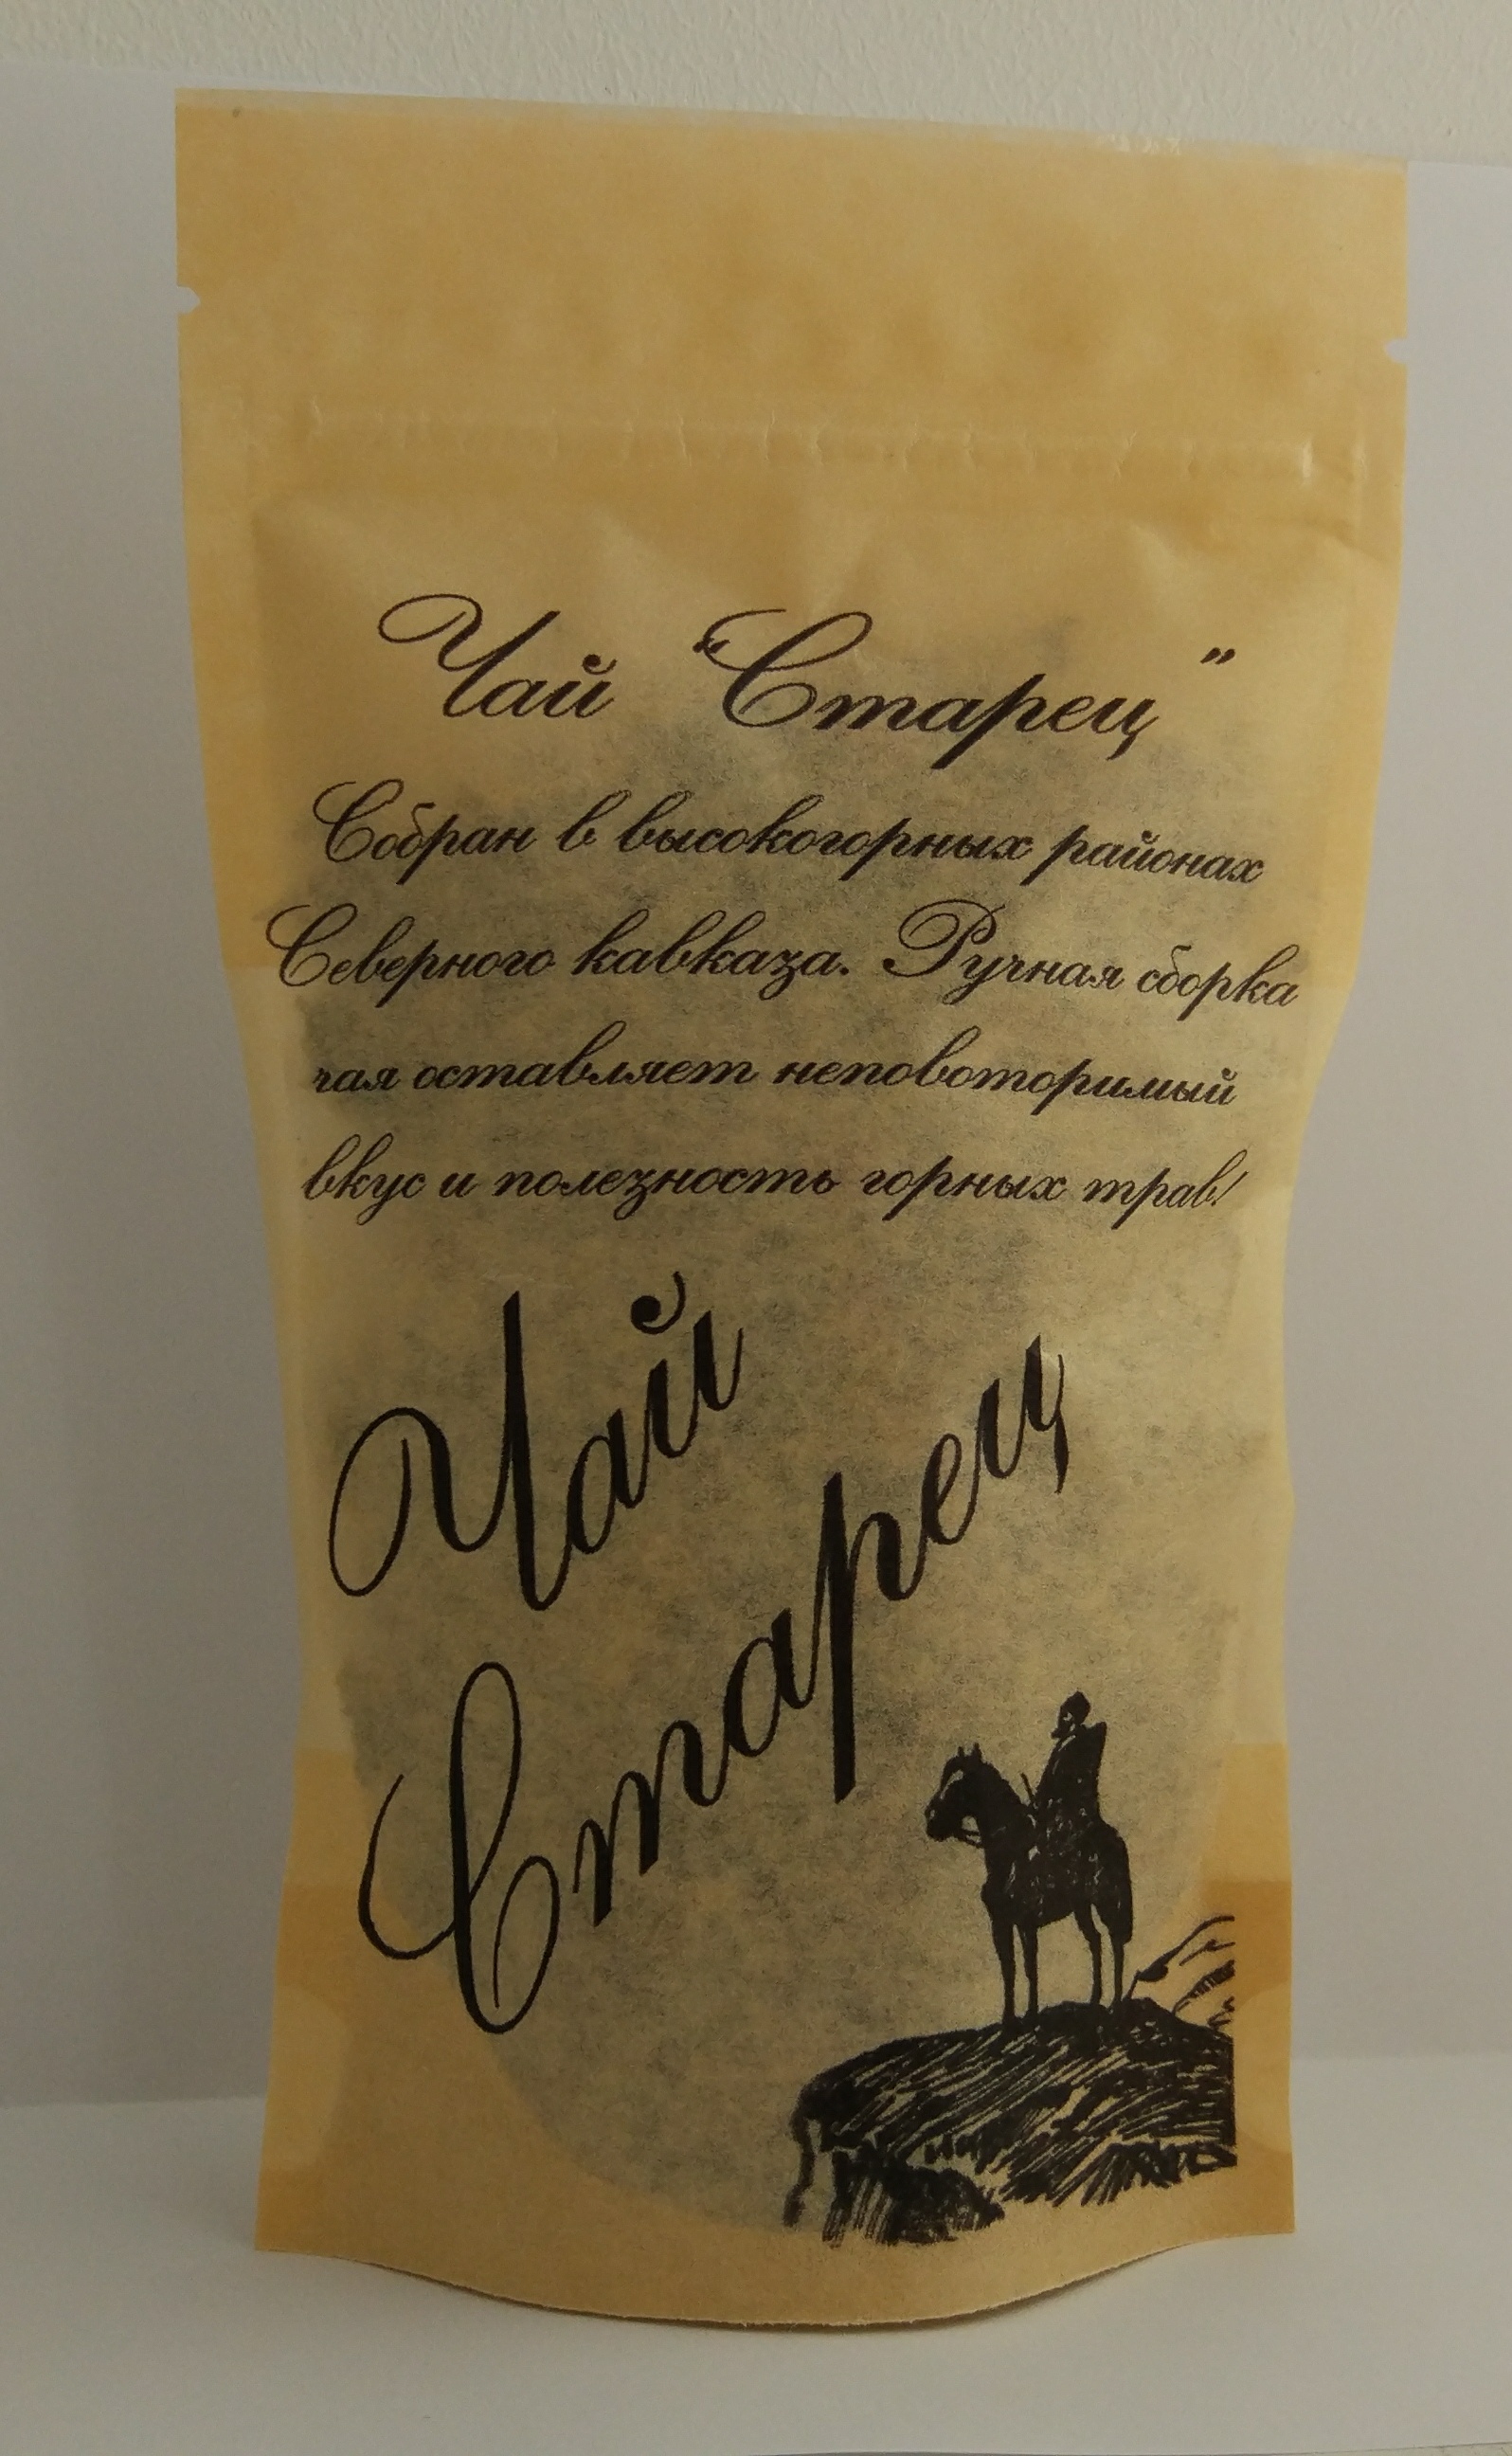 Чай "Старец"
Собран в высокогорных районах
Северного кавказа. Ручная сборка
чая оставляет неповоторимый
вкус и полезность горных трав!
Чай
Старец